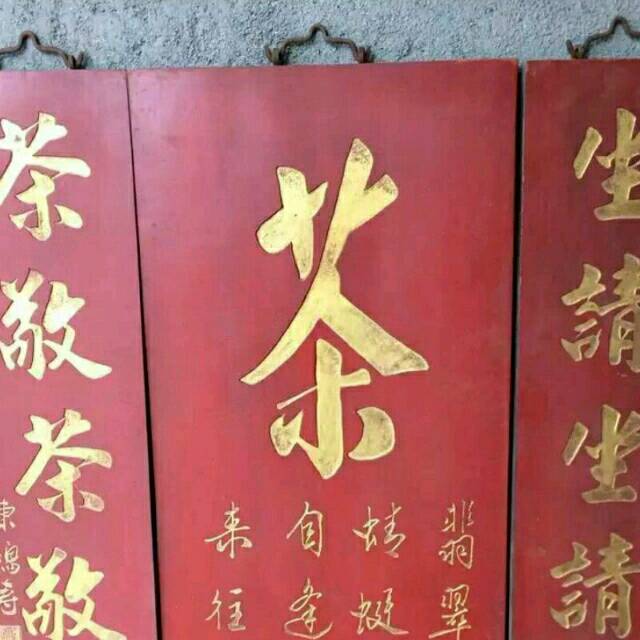 坐請坐請
茶
翡翠
蜻蜓
自逢
来往
茶敬茶敬
陳鴻壽